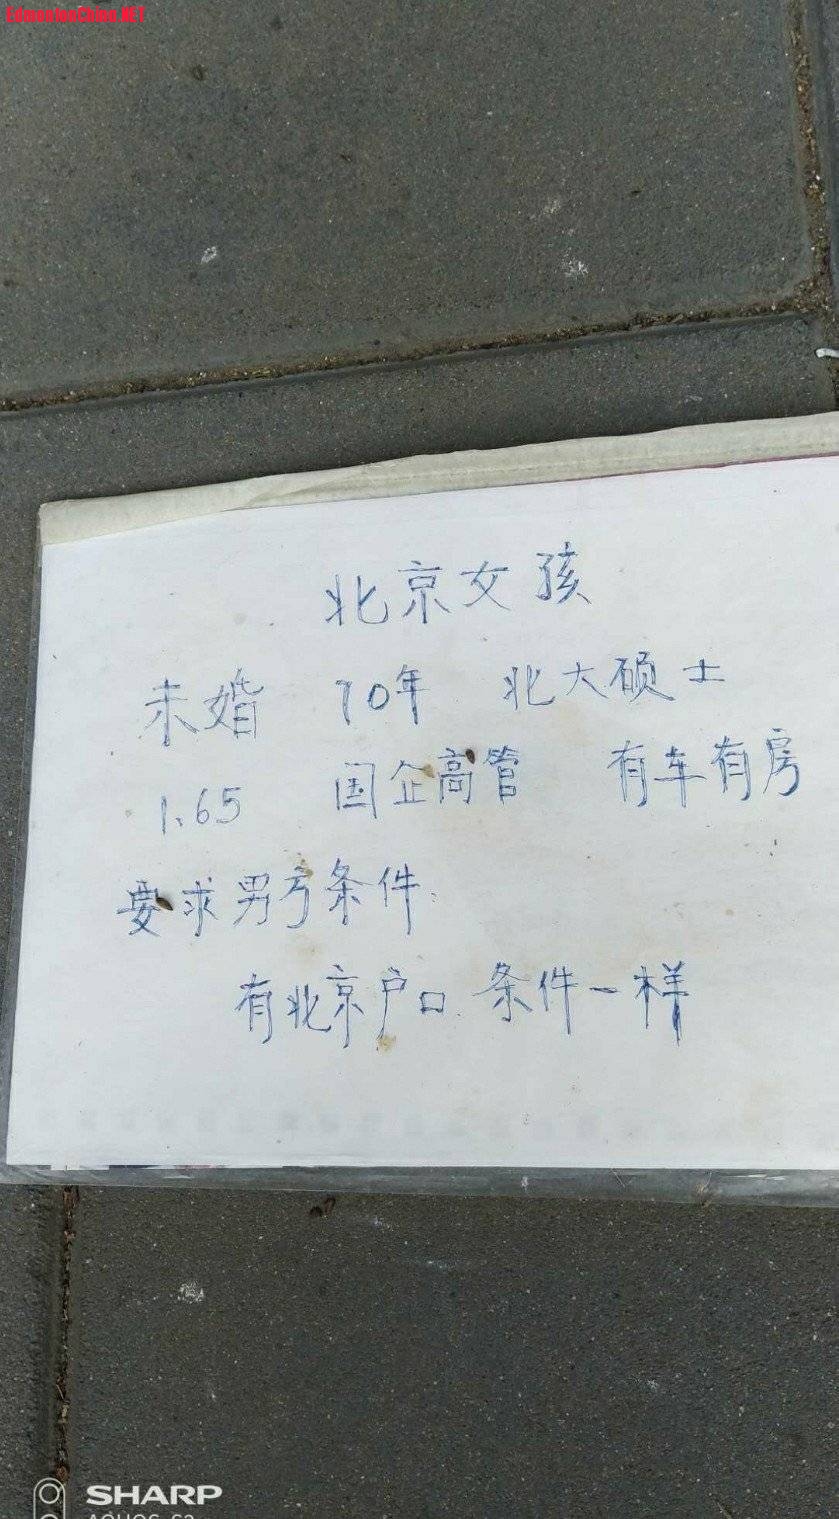 EdmontonChina.NET
北京女孩
未婚 70年 北大硕士
1.65 国企高管 有车有房
要求男方条件:
有北京户口.条件一样
SHARP
AQUOS S2